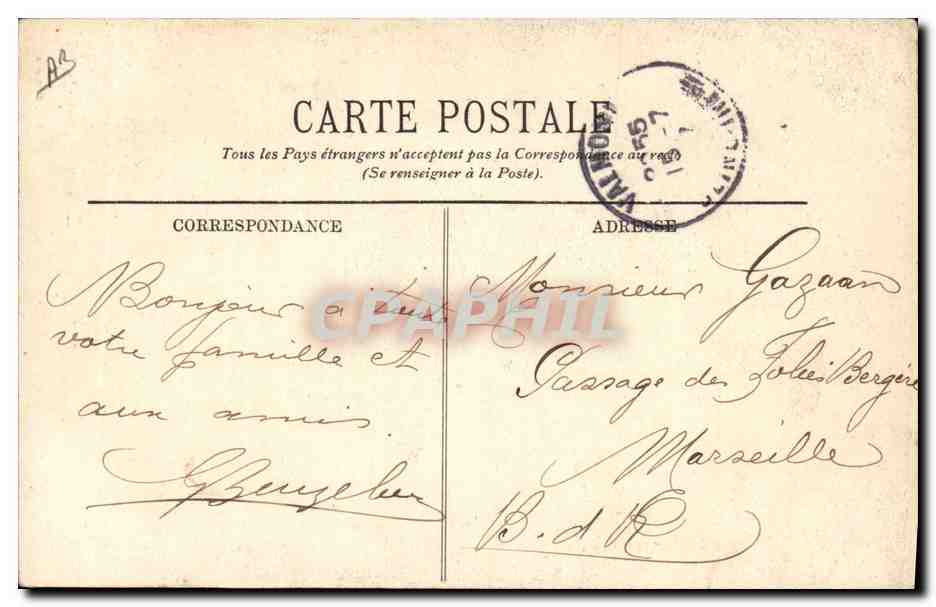 AB
CARTE POSTALE
Tous les Pays étrangers n'acceptent pas la Correspondance au recto
(Se renseigner à la Poste).
CORRESPONDANCE
ADRESSE
Bonjour à toute
votre famille et
aux amis
Monsieur Gazaan
Passage des Folies Bergère
Marseille
B. d R
CPAPHIL